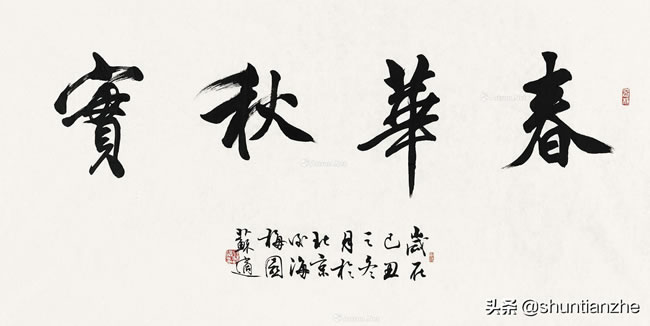 春華秋實
歲在
己丑
之冬
月於
北京
後海
梅園
蘇適
头条 @shuntianzhe